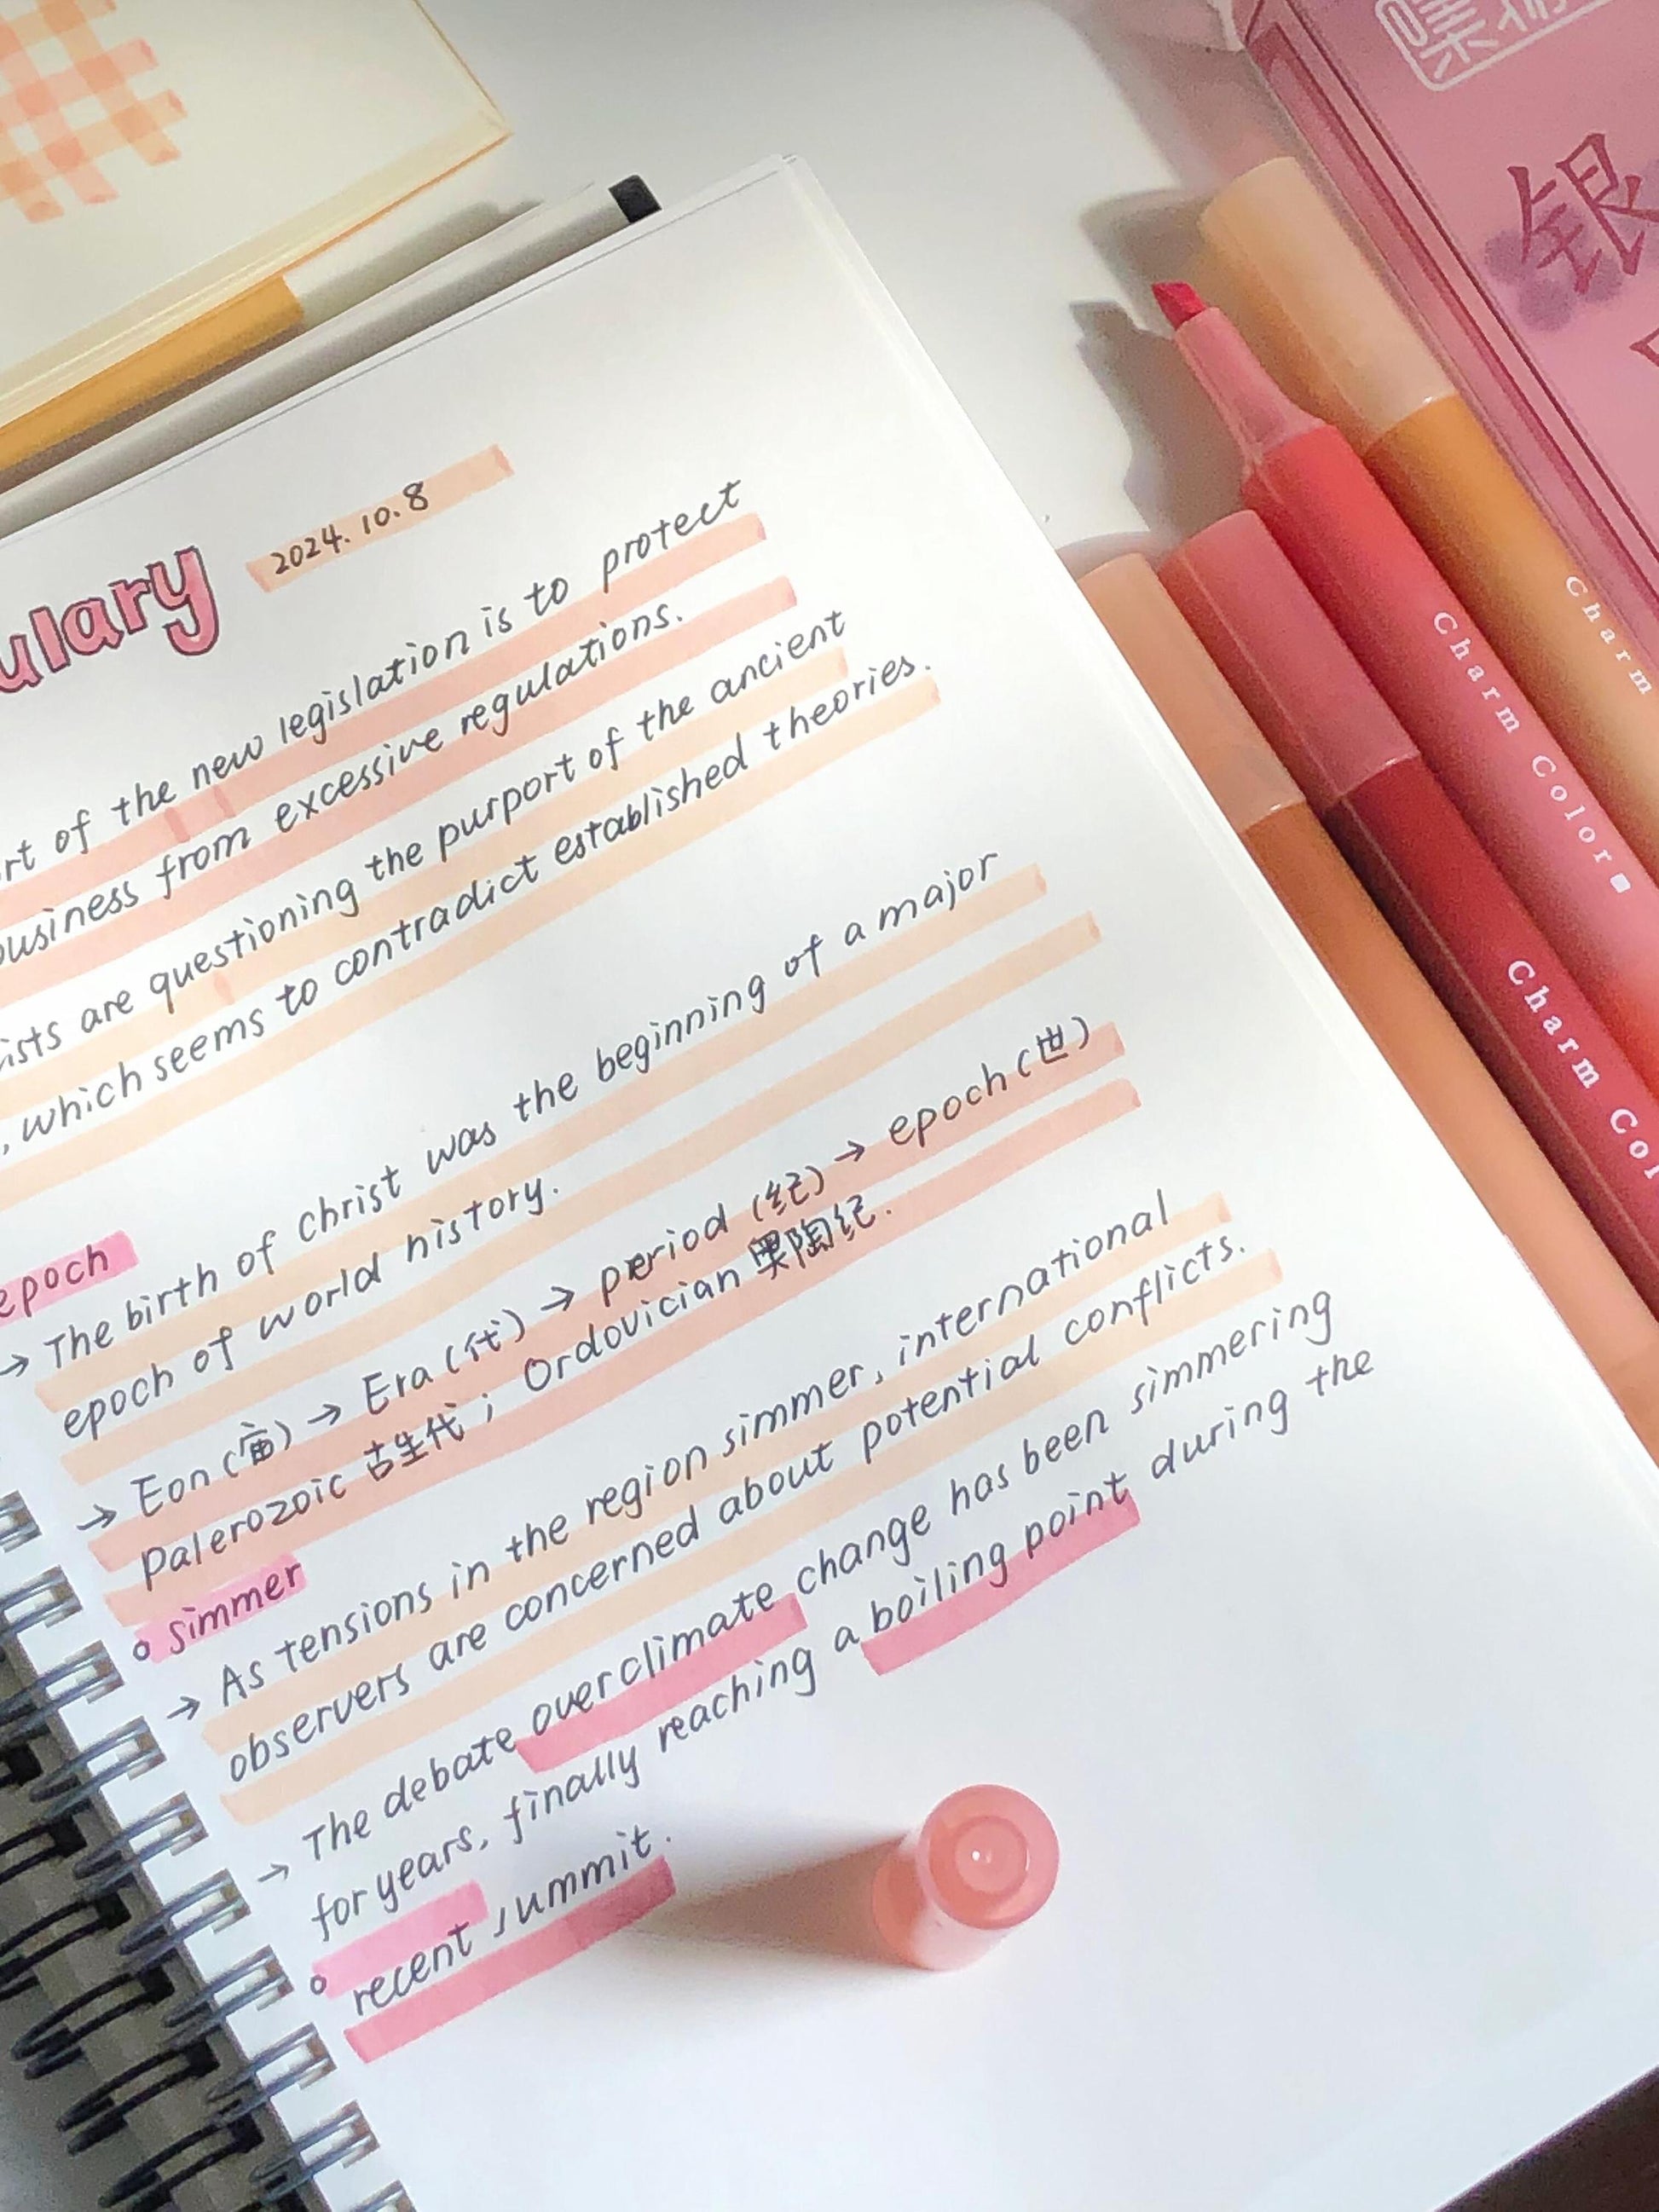 2024.10.8
of the new legislation is to protect
business from excessive regulations.
are questioning the purport of the ancient
, which seems to contradict established theories.
epoch
→ The birth of Christ was the beginning of a major
epoch of world history.
→ Eon (宙) → Era (代) → period (纪) → epoch (世)
Palerozoic 古生代 ; Ordovician 奥陶纪.
simmer
→ As tensions in the region simmer, international
observers are concerned about potential conflicts.
→ The debate over climate change has been simmering
for years, finally reaching a boiling point during the
recent summit.
银
Charm
Charm Color
Charm Col